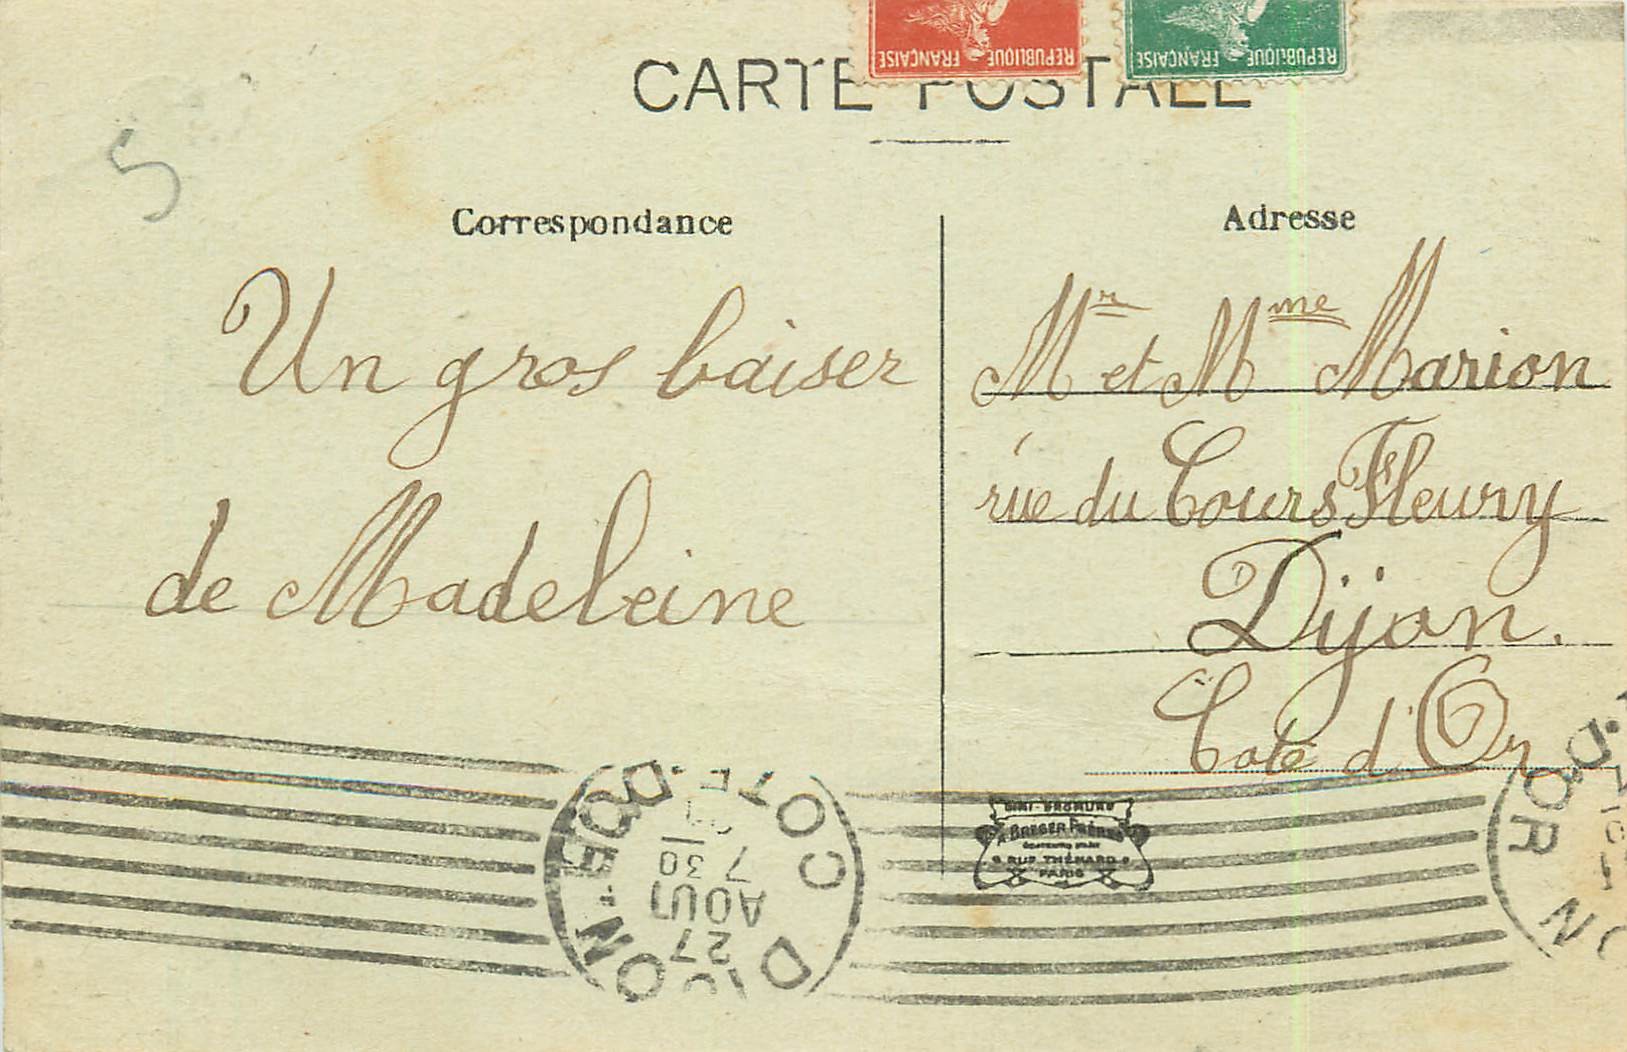 REPUBLIQUE FRANÇAISE
REPUBLIQUE FRANÇAISE
CARTE POSTALE
5
Correspondance
Adresse
Un gros baiser
de Madeleine
Mr et Mme Marion
rue du Cours Fleury
Dijon.
Cote d'Or
BREGER FRÈRES
RUE THÉNARD
PARIS
DIJON
COTE-D'OR
7 30
27
AOUT
D'OR